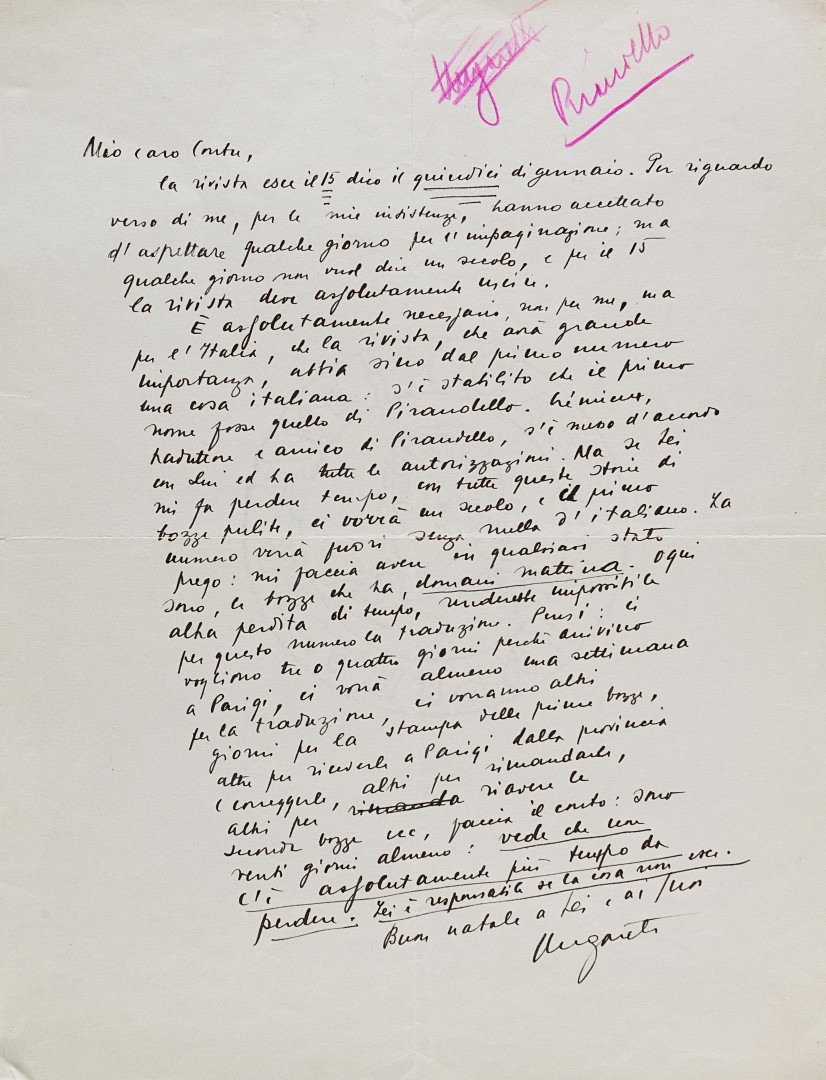 Ungaretti
Pirandello
Mio caro Contu,
la rivista esce il 15 dico il quindici di gennaio. Per riguardo
verso di me, per le mie insistenze, hanno accettato
d'aspettare qualche giorno per l'impaginazione; ma
qualche giorno non vuol dire un secolo, e per il 15
la rivista deve assolutamente uscire.
È assolutamente necessario, non per me, ma
per l'Italia, che la rivista, che avrà grande
importanza, abbia sino dal primo numero
una cosa italiana: s'è stabilito che il primo
nome fosse quello di Pirandello. Crémieux,
traduttore e amico di Pirandello, s'è messo d'accordo
con Lui ed ha tutte le autorizzazioni. Ma se Lei
mi fa perdere tempo, con tutte queste storie di
bozze pulite, ci vorrà un secolo, e il primo
numero verrà fuori senza nulla d'italiano. La
prego: mi faccia avere in qualsiasi stato
sono, le bozze che ha, domani mattina. Ogni
altra perdita di tempo, renderebbe impossibile
per questo numero la traduzione. Pensi: ci
vogliono tre o quattro giorni perchè arrivino
a Parigi, ci vorrà almeno una settimana
per la traduzione, ci vorranno altri
giorni per la stampa delle prime bozze,
altri per riceverle a Parigi dalla provincia
e correggerle, altri per rimandarle,
altri per rimanda riavere le
seconde bozze ecc, faccia il conto: sono
venti giorni almeno: vede che non
c'è assolutamente più tempo da
perdere. Lei è responsabile se la cosa non esce.
Buon natale a Lei e ai Suoi
Ungaretti